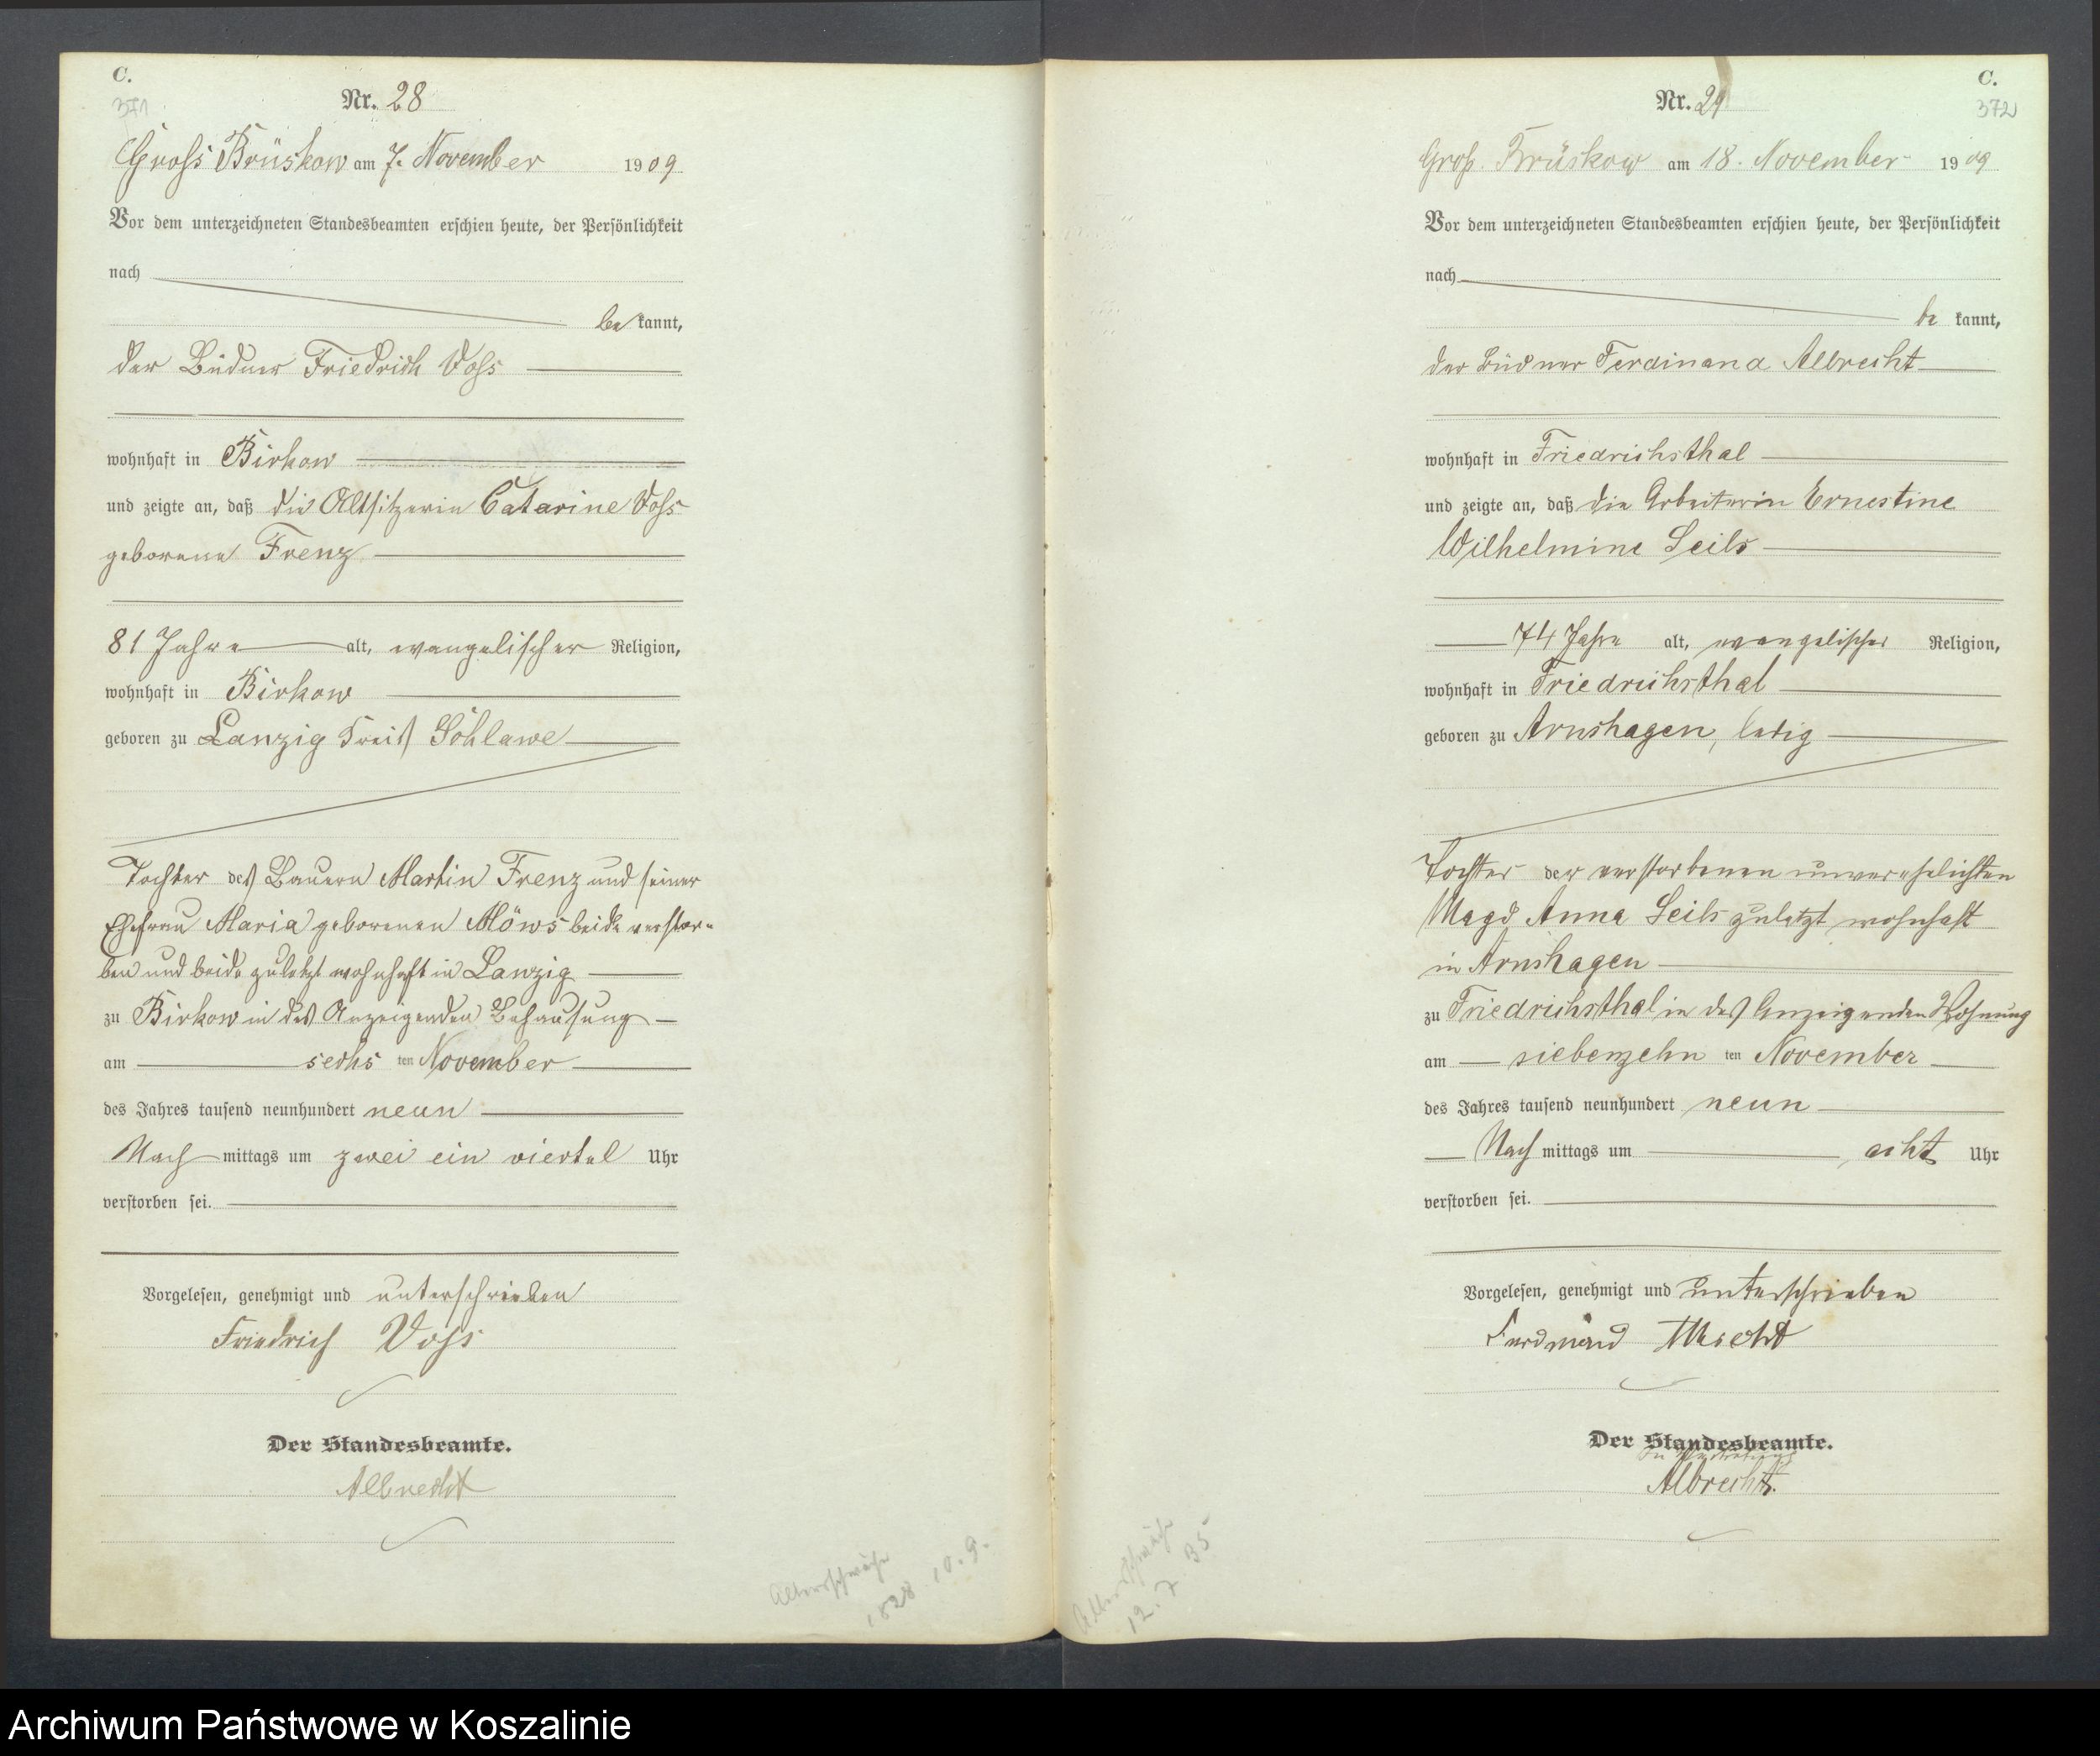 C.
371
Nr. 28
Gross Brüskow am 7. November 1909
Vor dem unterzeichneten Standesbeamten erschien heute, der Persönlichkeit
nach
bekannt,
der Büdner Friedrich Voss
wohnhaft in Birkow
und zeigte an, daß die Altsitzerin Catarine Voss
geborene Frenz
81 Jahre alt, evangelischer Religion,
wohnhaft in Birkow
geboren zu Lanzig Kreis Schlawe
Tochter des Bauern Martin Frenz und seiner
Ehefrau Maria geborenen Möws beide verstor-
ben und beide zuletzt wohnhaft in Lanzig
zu Birkow in des Anzeigenden Behausung
am sechs ten November
des Jahres tausend neunhundert neun
Nachmittags um zwei ein viertel Uhr
verstorben sei.
Vorgelesen, genehmigt und unterschrieben
Friedrich Voss
Der Standesbeamte.
Albrecht
Altersschwäche
1828 10. 9.
C.
372
Nr. 29
Groß Brüskow am 18. November 1909
Vor dem unterzeichneten Standesbeamten erschien heute, der Persönlichkeit
nach
be kannt,
der Büdner Ferdinand Albrecht
wohnhaft in Friedrichsthal
und zeigte an, daß die Arbeiterin Ernestine
Wilhelmine Seils
74 Jahre alt, evangelischer Religion,
wohnhaft in Friedrichsthal
geboren zu Arnshagen, ledig
Tochter der verstorbenen unverehelichten
Magd Anna Seils zuletzt wohnhaft
in Arnshagen
zu Friedrichsthal in des Anzeigenden Wohnung
am siebenzehn ten November
des Jahres tausend neunhundert neun
Nach mittags um acht Uhr
verstorben sei.
Vorgelesen, genehmigt und unterschrieben
Ferdinand Albrecht
Der Standesbeamte.
In Vertretung
Albrecht.
Altersschwäche
12. 7 35
Archiwum Państwowe w Koszalinie